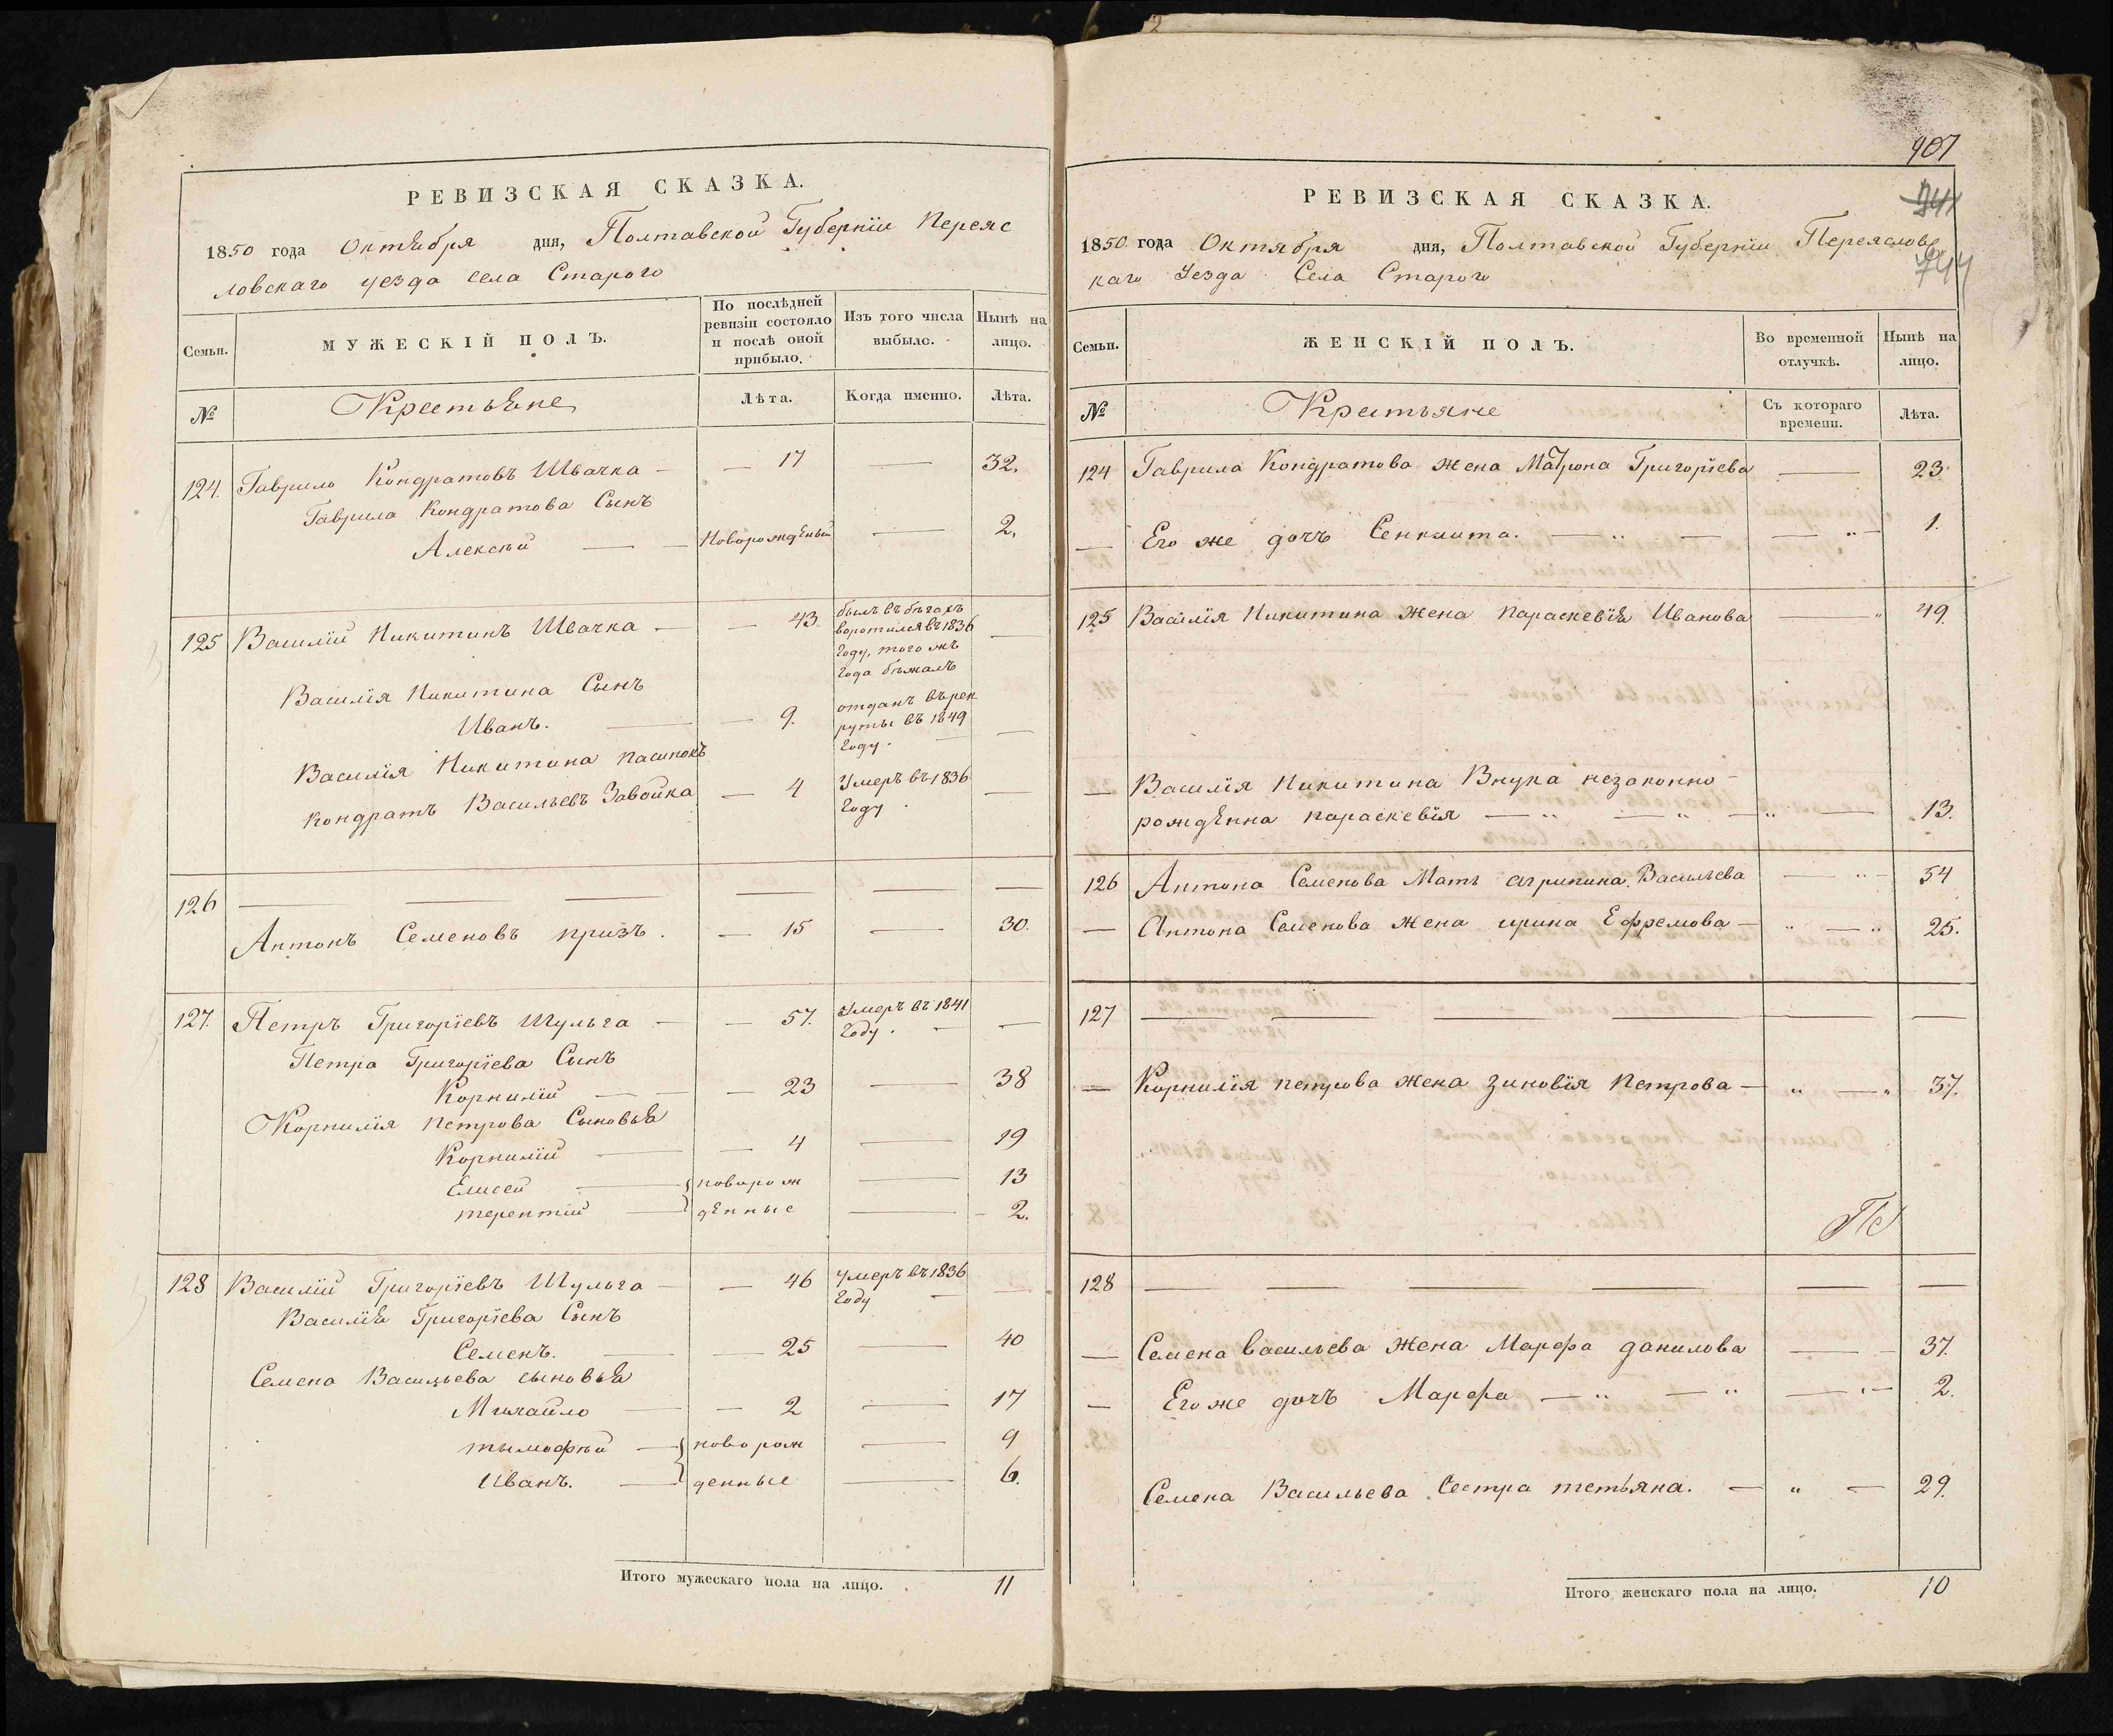 РЕВИЗСКАЯ СКАЗКА.
1850 года Октября дня, Полтавской Губерніи Переяс
ловскаго уезда села Старого
Семьи.
МУЖЕСКІЙ ПОЛЪ.
По послѣдней
ревизіи состояло
и послѣ оной
прибыло.
Изъ того числа
выбыло.
Нынѣ на
лицо.
№
Крестьяне
Лѣта.
Когда именно.
Лѣта.
124. Гаврило Кондратовъ Швачка — — 17 — 32.
Гаврила Кондратова Сынъ
Алексѣй — — Новорожденый — 2.
125 Василій Никитинъ Швачка — — 43 былъ въ бѣгахъ
воротился въ 1836
году, того жъ
года бѣжалъ —
Василія Никитина Сынъ
Иванъ. — — 9. отданъ въ рек
руты въ 1849
году. — —
Василія Никитина пасинокъ
Кондратъ Васильевъ Завойка — 4 Умеръ въ 1836
году. —
126 — — — — — —
Антонъ Семеновъ призъ. — 15 — 30.
127. Петръ Григоріевъ Шульга — — 57. Умеръ въ 1841
году. — —
Петра Григоріева Сынъ
Корнилій — — 23 — 38
Корнилія Петрова Сыновья
Корнилій — — 4 — 19
Елисей — новорож — 13
терентій — денные — 2.
128 Василій Григоріевъ Шульга — — 46 умеръ въ 1836
году — —
Василія Григоріева Сынъ
Семенъ. — — 25 — 40
Семена Васильева сыновья
Михайло — — 2 — 17
тымофѣй — новорож — 9
Иванъ. — денные — 6.
Итого мужескаго пола на лицо. 11
907
741
744
РЕВИЗСКАЯ СКАЗКА.
1850 года Октября дня, Полтавской Губерніи Переяловс
каго Уезда Села Старого
Семьи.
ЖЕНСКІЙ ПОЛЪ.
Во временной
отлучкѣ.
Нынѣ на
лицо.
№
Крестьяне
Съ котораго
времени.
Лѣта.
124 Гаврила Кондратова жена Матрона Григоріева — 23.
— Его же дочъ Сенклита. — „ — — „ — 1.
125 Василія Никитина жена Параскевія Иванова — „ 49.
— Василія Никитина Внука незаконно-
рожденна параскевія — „ — „ — „ — 13.
126 Антона Семенова Мать агрипина Васильева — „ — 54
— Антона Семенова жена ирина Ефремова — „ — „ 25.
127 — — — — — —
— Корнилія петрова жена зиновія Петрова — „ — „ 37.
128 — — — — — —
— Семена васильева жена Марфа данилова — — 37.
— Его же дочъ Марфа — „ — „ — „ — 2.
Семена Васильева Сестра тетьяна. — „ — 29.
Итого женскаго пола на лицо. 10